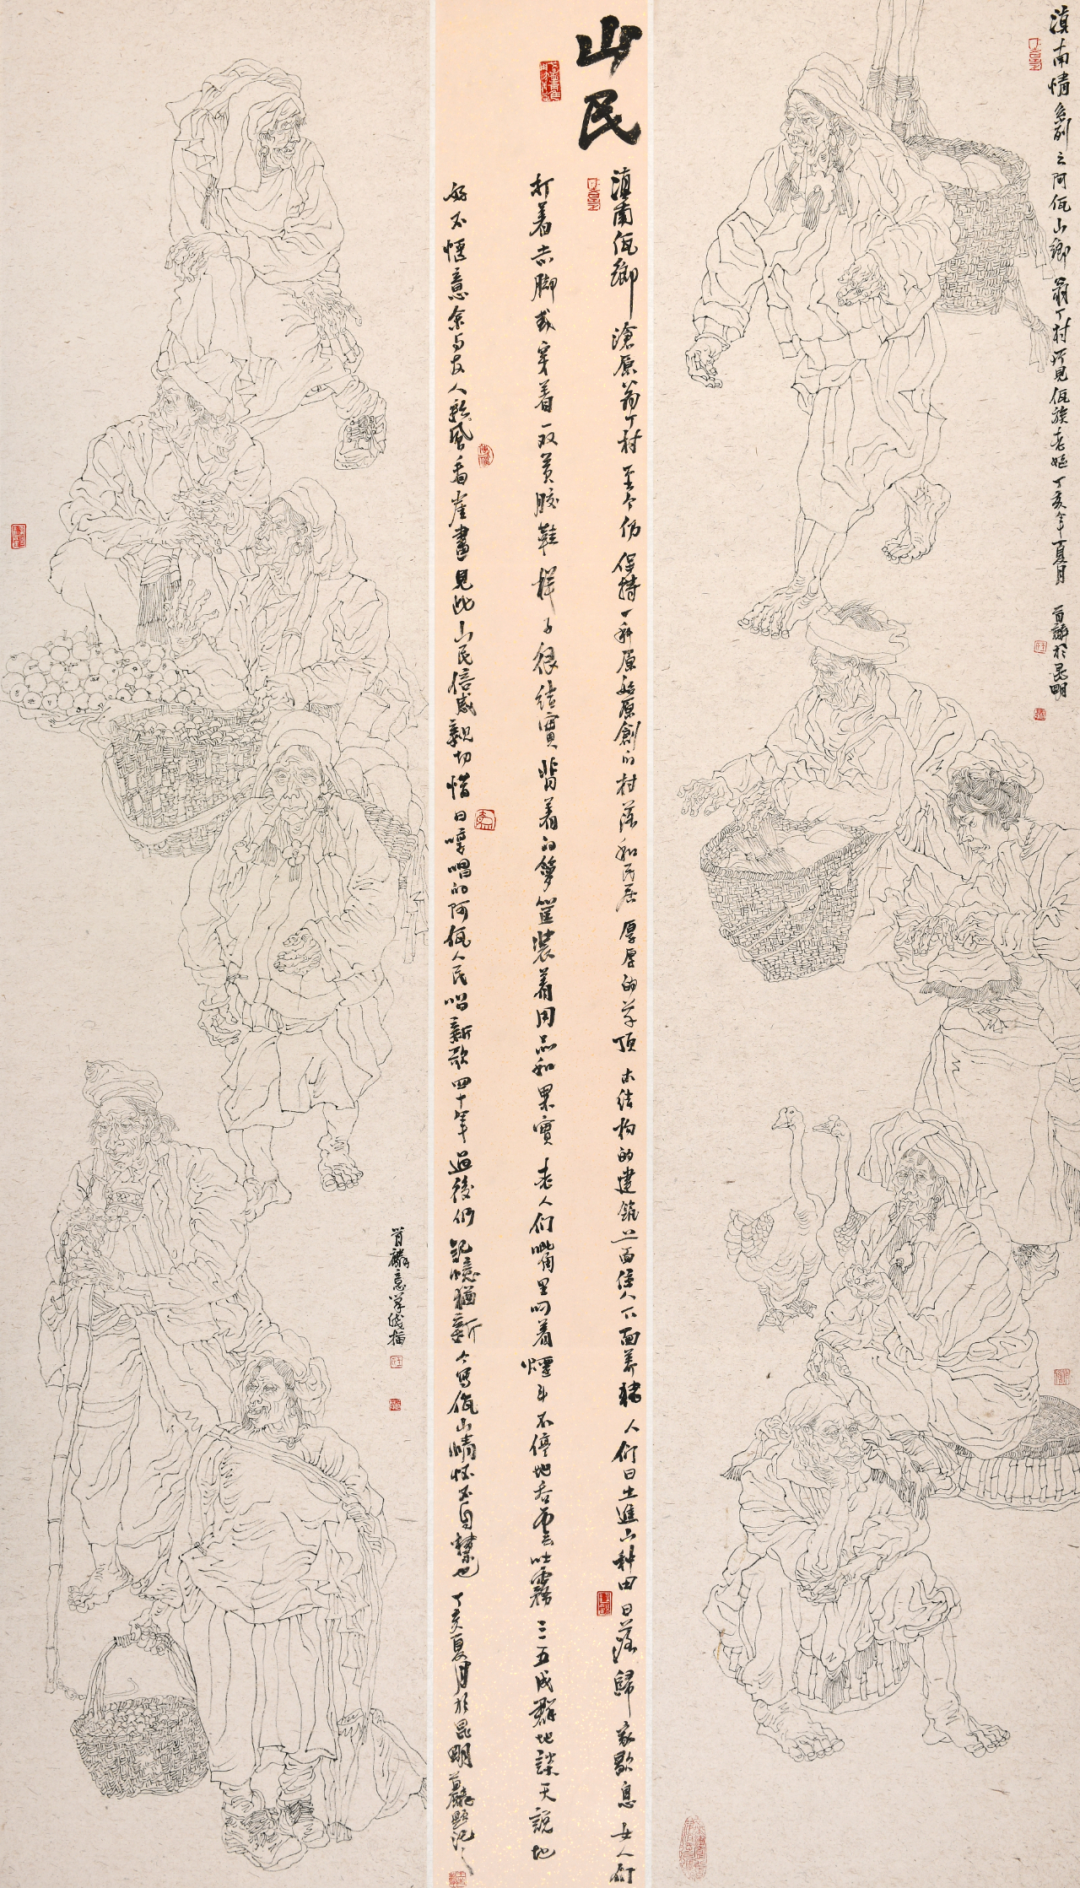 滇南情系列之阿佤山鄉 翁丁村所見佤族老嫗 丁亥年夏月 首麟於昆明
山民
滇南佤鄉滄原翁丁村至今仍保持一種原始原創的村落和民居厚厚的草頂木結构的建築上面住人下面养猪人们日出進山种田日落歸家歇息女人们
打着赤脚或穿着一双黄胶鞋样子很结實背着的箩筐装着用品和果實老人们嘴里叼着煙斗不停地吞雲吐霧三五成群地談天說地
好不愜意余与友人采風看崖畫見此山民倍感親切惜日哼唱的阿佤人民唱新歌四十年過後仍記憶猶新今寫佤山情怀不自禁也丁亥夏月於昆明首麟題記
首麟意筆线描